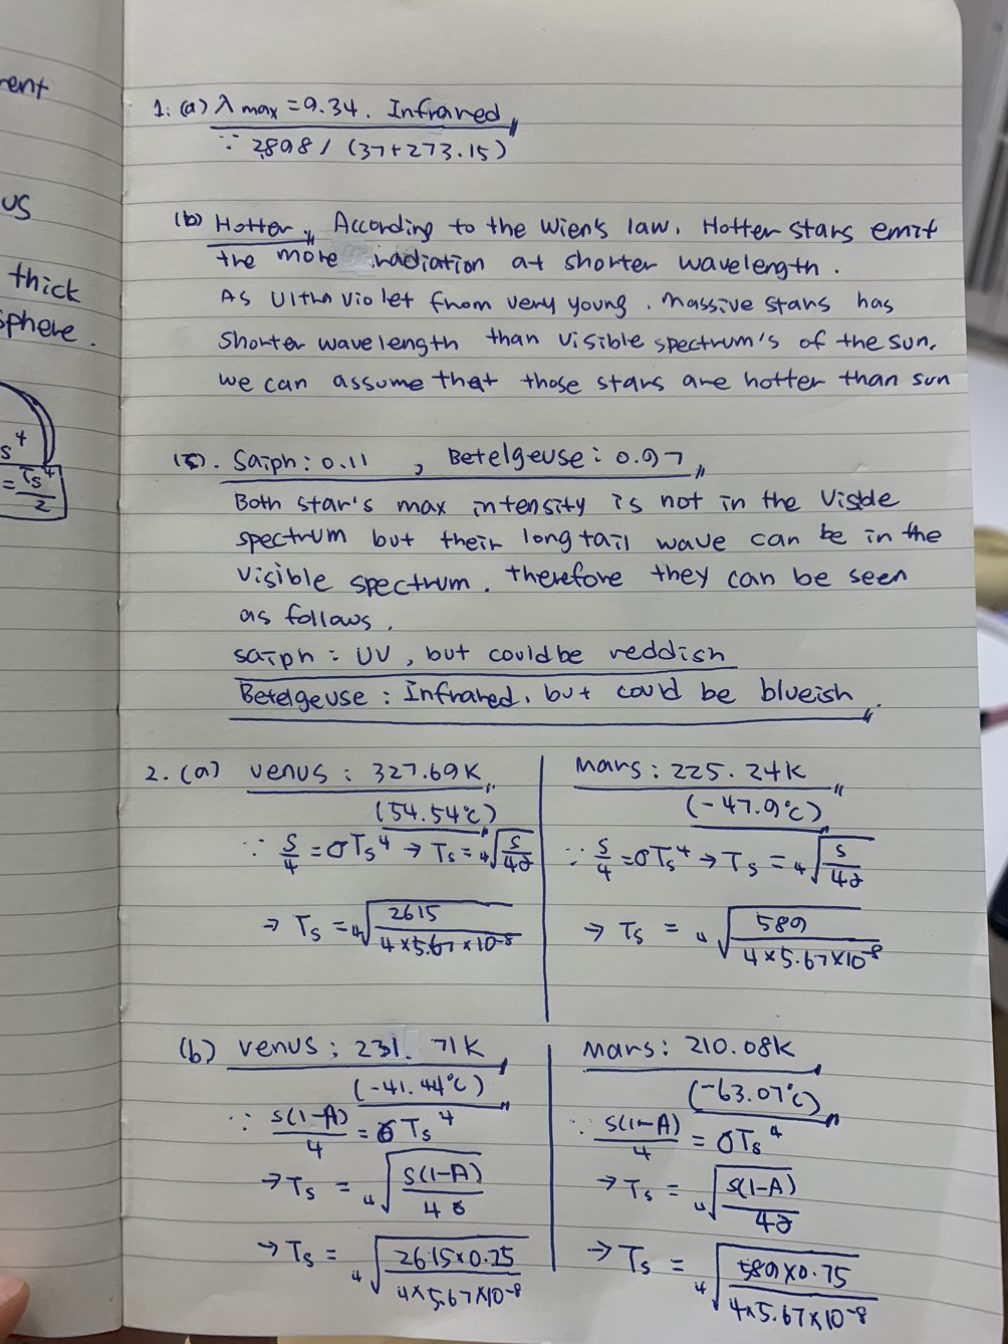 rent
us
thick
sphere.
s⁴
= Ts⁴/2
1. (a) λ max = 9.34. Infrared
∵ 2898 / (37+273.15)
(b) Hotter, According to the Wien's law, Hotter stars emit
the more radiation at shorter wavelength.
As Ultra Violet from very young. massive stars has
shorter wavelength than visible spectrum's of the sun,
we can assume that those stars are hotter than sun
(c). Saiph: 0.11, Betelgeuse: 0.97
Both star's max intensity is not in the Visble
spectrum but their long tail wave can be in the
visible spectrum. therefore they can be seen
as follows,
saiph = UV, but could be reddish
Betelgeuse: Infrared, but could be blueish
2. (a) venus: 327.69K
(54.54℃)
∵ S/4 = σTs⁴ → Ts = ⁴√(S/4σ)
→ Ts = ⁴√(2615/4×5.67×10⁻⁸)
mars: 225.24K
(-47.9℃)
∵ S/4 = σTs⁴ → Ts = ⁴√(S/4σ)
→ Ts = ⁴√(589/4×5.67×10⁻⁸)
(b) venus: 231.71K
(-41.44℃)
∵ S(1-A)/4 = σTs⁴
→ Ts = ⁴√(S(1-A)/4σ)
→ Ts = ⁴√(2615×0.25/4×5.67×10⁻⁸)
mars: 210.08K
(-63.07℃)
∵ S(1-A)/4 = σTs⁴
→ Ts = ⁴√(S(1-A)/4σ)
→ Ts = ⁴√(589×0.75/4×5.67×10⁻⁸)